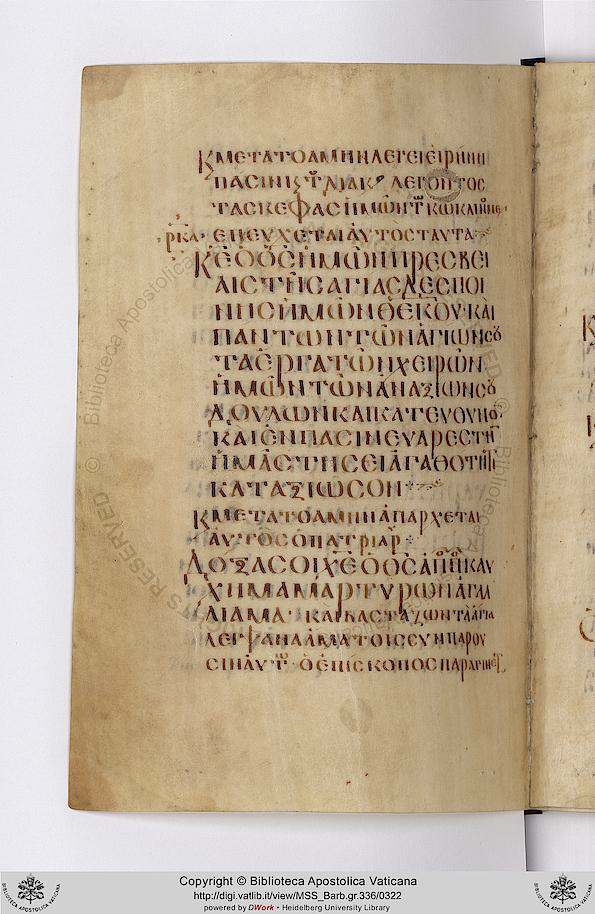 ΚΜΕΤΑΤΟΑΜΗΝΛΕΓΕΙΕΙΡΗΝΗ
ΠΑΣΙΝ ΛΕΓΟΝΤΟΣ
ΤΑΣΚΕΦΑΣΗΜΩΝΤΚΩΚΛΙΝ
ΡΚΑ· ΕΠΕΥΧΕΤΑΙΑΥΤΟΣΤΑΥΤΑ
ΚΕΟΘΣΗΜΩΝΠΡΕΣΒΕΙ
ΑΙΣΤΗΣΑΓΙΑΣΔΕΣΠΟΙ
ΝΗΣΗΜΩΝΘΕΚΟΥΚΑΙ
ΠΑΝΤΩΝΤΩΝΑΓΙΩΝΣΟΥ
ΤΑΕΡΓΑΤΩΝΧΕΙΡΩΝ
ΗΜΩΝΤΩΝΑΝΑΞΙΩΝΣΟΥ
ΔΟΥΛΩΝΚΑΙΚΑΤΕΥΟΥΝΟ
ΚΑΙΕΝΠΑΣΙΝΕΥΑΡΕΣΤΗ
ΗΜΑΣΤΗΣΕΙΑΓΑΘΟΤΗΤΙ
ΚΑΤΑΞΙΩΣΟΝ
ΚΜΕΤΑΤΟΑΜΗΝΑΠΑΡΧΕΤΑΙ
ΑΥΤΟΣΟΠΑΤΡΙΑΡ
ΔΟΞΑΣΟΙΧΕΟΘΣΑΠΚΑΥ
ΧΗΜΑΜΑΡΤΥΡΩΝΑΓΑΛ
ΛΙΑΜΑ· ΚΑΙΒΑΣΤΑΖΩΝΤΑΑΓΙΑ
ΛΕΙΨΑΝΑΑΜΑΤΟΙΣΕΥΝΠΑΡΟΥ
ΣΙΝΑΥΤ· ΟΕΠΙΣΚΟΠΟΣΠΑΡΑΓΙΝΕΤ
Copyright © Biblioteca Apostolica Vaticana
http://digi.vatlib.it/view/MSS_Barb.gr.336/0322
powered by DWork • Heidelberg University Library